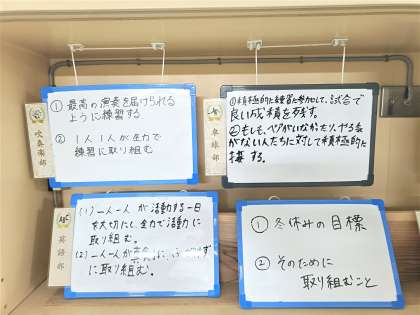 吹奏楽部
① 最高の演奏を届けられる
ように練習する
② 1人1人が全力で
練習に取り組む
卓球部
①積極的に練習に参加して、試合で
良い成績を残す。
②もしも、ペアがいなかったり、やる気
がない人たちに対して積極的に
接する。
英語部
(1) 一人一人が活動する一日
を大切にし、全力で活動に
取り組む。
(2) 一人一人が
に取り組む。
① 冬休みの目標
② そのために
取り組むこと